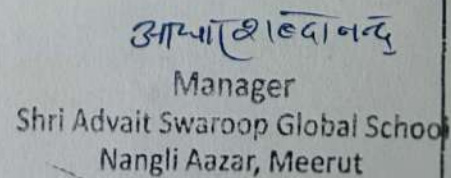 आचार्य शब्दानन्द
Manager
Shri Advait Swaroop Global School
Nangli Aazar, Meerut